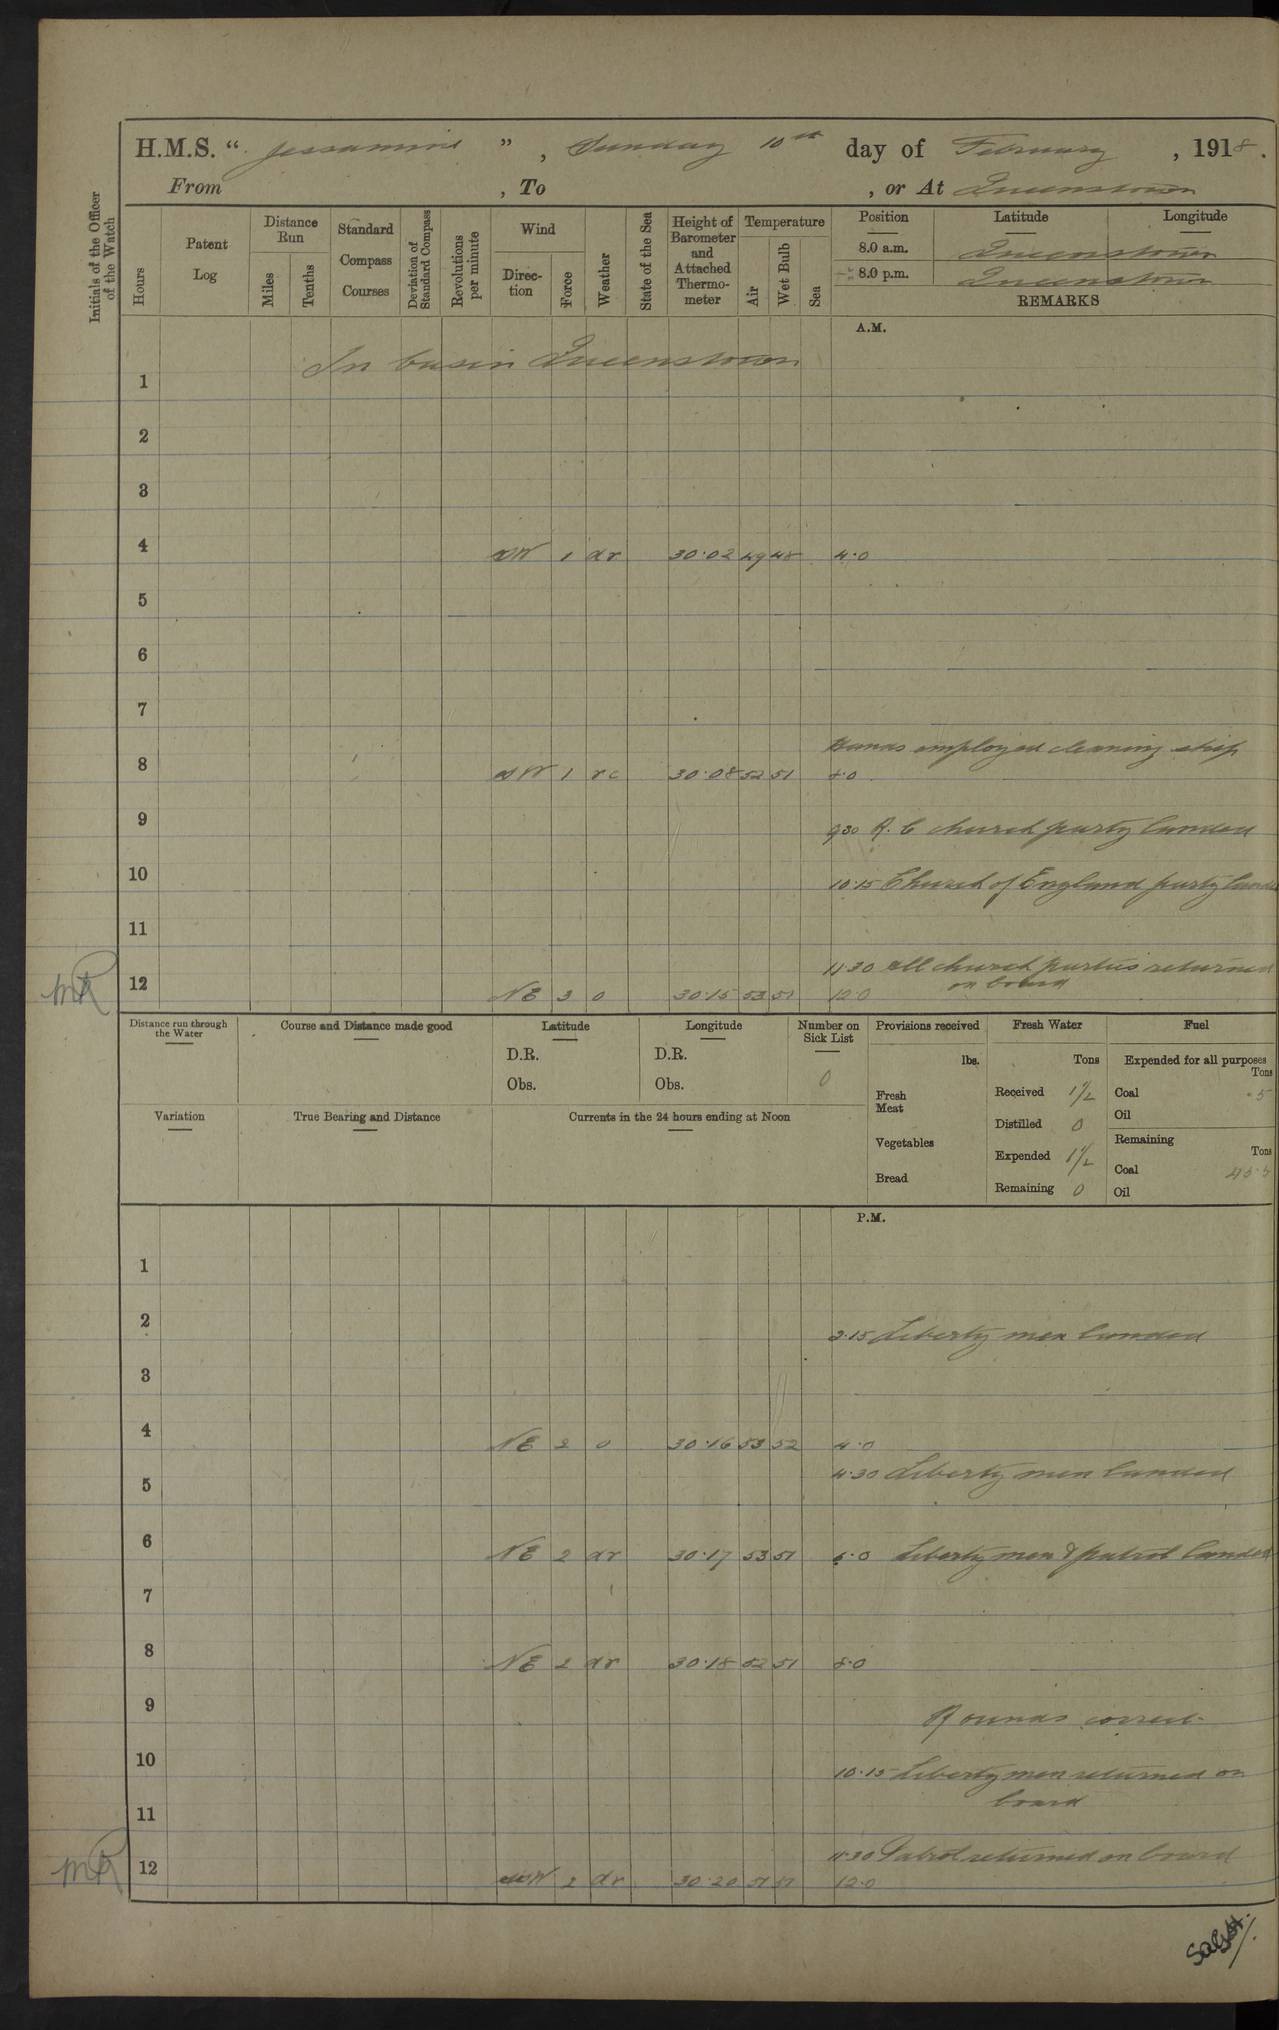 H.M.S. “ Jessamine ” , Sunday 10th day of February , 1918.
From , To , or At Queenstown
Initials of the Officer of the Watch
Hours
Patent Log
Distance Run
Miles
Tenths
Standard Compass Courses
Deviation of Standard Compass
Revolutions per minute
Wind
Direc- tion
Force
Weather
State of the Sea
Height of Barometer and Attached Thermo- meter
Temperature
Air
Wet Bulb
Sea
Position Latitude Longitude
8.0 a.m. Queenstown
8.0 p.m. Queenstown
REMARKS
A.M.
In basin Queenstown
1
2
3
4 SW 1 dr 30.02 49 48 4.0
5
6
7
Hands employed cleaning ship
8 SW 1 rc 30.08 52 51 8.0
9 930 R. C church party landed
10 10.15 Church of England party landed
11
11.30 All church parties returned
on board
MR 12 NE 3 0 30.15 53 51 12.0
Distance run through the Water
Course and Distance made good
Latitude
D.R.
Obs.
Longitude
D.R.
Obs.
Number on Sick List
0
Variation
True Bearing and Distance
Currents in the 24 hours ending at Noon
Provisions received
lbs.
Fresh Meat
Vegetables
Bread
Fresh Water
Tons
Received 1½
Distilled 0
Expended 1½
Remaining 0
Fuel
Expended for all purposes
Tons
Coal .5
Oil
Remaining
Tons
Coal 45.5
Oil
P.M.
1
2 2.15 Liberty men landed
3
4 NE 2 0 30.16 53 52 4.0
4.30 Liberty men landed
5
6 NE 2 dr 30.17 53 51 6.0 Liberty men & patrol landed
7
8 NE 2 dr 30.18 52 51 8.0
9 Rounds correct
10 10.15 Liberty men returned on
board
11
11.30 Patrol returned on board
MR 12 2 dr 30.20 51 51 12.0